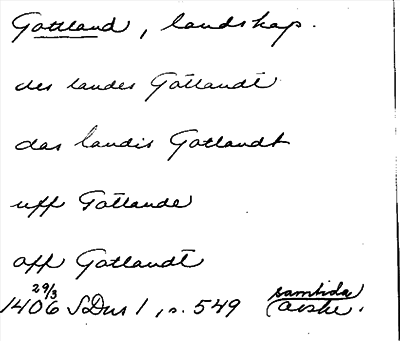 Gottland, landskap.
des landes Gotlandt
das landis Gotlandt
uff Gotlande
aff Gotlandt
29/3
1406 SDns 1, s. 549 samtida avskr.